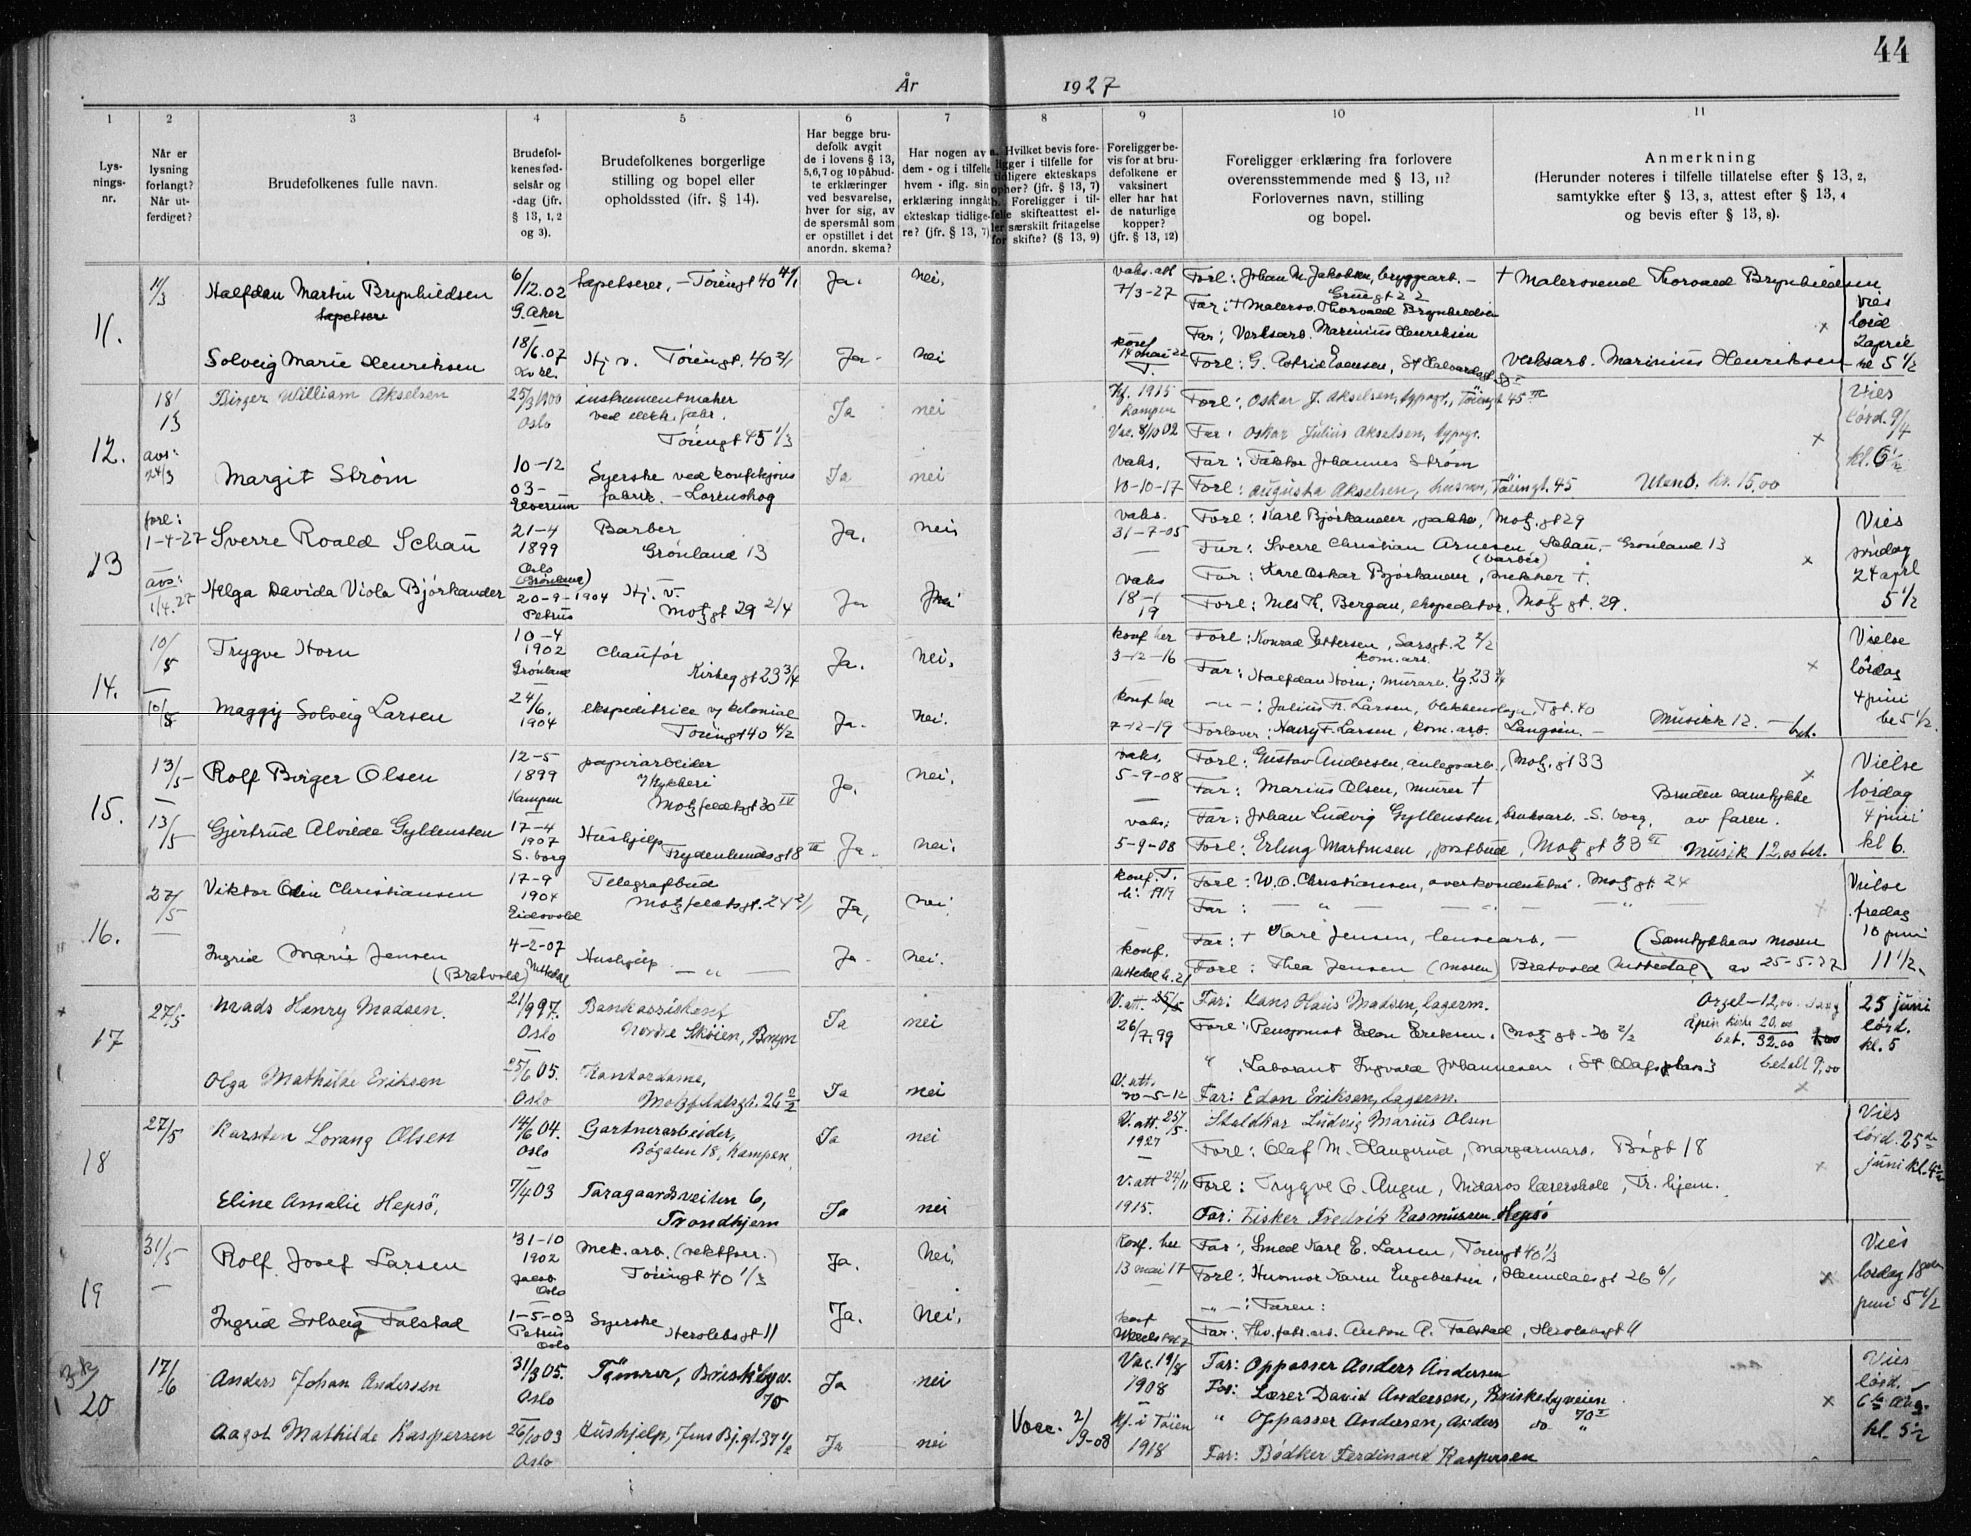 44
År 1927
1 2 3 4 5 6 7 8 9 10 11
Lysningsnr.
Når er lysning forlangt? Når utferdiget?
Brudefolkenes fulle navn.
Brudefolkenes fødselsår og -dag (jfr. § 13, 1, 2 og 3).
Brudefolkenes borgerlige stilling og bopel eller opholdssted (ifr. § 14).
Har begge brudefolk avgit de i lovens § 13, 5, 6, 7 og 10 påbudte erklæringer ved besvarelse, hver for sig, av de spørsmål som er opstillet i det anordn. skema?
Har nogen av dem - og i tilfelle hvem - iflg. sin erklæring inngåt ekteskap tidligere? (jfr. § 13, 7)
Hvilket bevis foreligger i tilfelle for tidligere ekteskaps ophør? (jfr. § 13, 7) Foreligger i tilfelle skifteattest eller særskilt fritagelse for skifte? (§ 13, 9)
Foreligger bevis for at brudefolkene er vaksinert eller har hat de naturlige kopper? (jfr. § 13, 12)
Foreligger erklæring fra forlovere overensstemmende med § 13, 11? Forlovernes navn, stilling og bopel.
Anmerkning
(Herunder noteres i tilfelle tillatelse efter § 13, 2, samtykke efter § 13, 3, attest efter § 13, 4 og bevis efter § 13, 8).
11.
11/3 Halfdan Martin Brynhildsen 6/12.02 G. Aker tapetserer, - Töiengt 40 4/1 Ja. nei. vaks. att 7/3-27
Forl: Johan M. Jakobsen, bryggearb. -
Far: + Malersv. Thorvald Brynhildsen
+ Malersvend Thorvald Brynhildsen
Vies lørd 2 april kl 5 1/2
Solveig Marie Henriksen 18/6.07 Hj v. Töiengt. 40 2/1 Ja- nei konf 14 mai 22
Far: Verksarb. Marinius Henriksen
Forl: G. Astrid Evensen, St Halvardsgt
Verksarb. Marinius Henriksen
12.
18/3 Birger William Akselsen 25/3 1900 Oslo instrumentmaker ved elektr. fabr. Töiengt 45 1/3 Ja nei Kf. 1915 Kampen Vac. 8/10 02
Forl: Oskar J. Akselsen, typogr., Töiengt 45 III
Far: Oskar Julius Akselsen, typogr.
Vies lørd. 9/4 kl. 6 1/2
avs: 24/3 Margit Strøm 10-12 03- Elverum Syerske ved konfeksjons fabrik. - Lørenskog Ja nei vaks. 10-10-17
Far: Faktor Johannes Strøm
Forl: Augusta Akselsen, husmor, Töiengt. 45
Utenb. kr. 15,00
13
forl: 1-4-27 Sverre Roald Schau 21-4 1899 Oslo (Grønland) Barber Grönland 13 Ja. nei vaks. 31-7-05
Forl: Karl Björkander, Motz. gt 29
Far: Sverre Christian Arnesen Schau, - Grønland 13 (barber)
Vies søndag 24 april 5 1/2
avs: 1/4.27 Helga Davida Viola Björkander 20-9-1904 Petrus Hj. v. Motz gt 29 2/4 Ja nei vaks 18-1 19
Far: Karl Oskar Björkander, snekker +.
Forl: Nils Th. Bergau, ekspeditør, Motz gt. 29.
14.
10/5 Trygve Horn 10-4 1902 Grønland Chaufør Kirkegt 23 3/4 Ja. nei. konf her 3-12-16
Forl: Konrad Pettersen, Sarsgt. 2 2/2 kom. arb.
Far: Halfdan Horn; murarb. Kg. 23 3/4
Vielse lördag 4 juni kl 5 1/2.
10/5 Maggy Solveig Larsen 24/6. 1904 ekspeditrice v/ kolonial Töiengt 40 4/2 Ja. nei. konf her 7-12-19
- " - : Julius Th. Larsen, T gt. 40
Forlover: Harry F. Larsen, kom. arb. Langsien. -
Musikk 12. - bet.
15.
13/5 Rolf Birger Olsen 12-5 1899 Kampen papirarbeider Motzfeldtsgt 30 IV Ja. nei. vaks. 5-9-08
Forl: Gustav Andersen, anlegsarb, Motz. gt 33
Far: Marius Olsen, murer +
Vielse lørdag 4 juni kl 6.
13/5 Gjertrud Alvilde Gyldensten 17-4 1907 S. borg Hushjelp Frydenlundsgt 8 III Ja. nei. vaks: 5-9-08
Far: Johan Ludvig Gyllensten, bruksarb. S. borg.
Forl: Erling Martinsen, postbud, Motz gt 33 III
Bruden samtykke av faren.
Musik 12,00 bet.
16.
27/5 Viktor Odin Christiansen 17-9 1904 Eidsvold Telegrafbud Motzfeldtsgt. 24 2/1 Ja, nei. konf. T. ki. 1919
Forl: W. O. Christiansen, overkonduktør. Motz gt. 24
Far: - " - - " -
Vielse fredag 10 juni 11 1/2.
Ingrid Marie Jensen (Bratvold) 4-2-07 Nittedal Hushjelp - " - Ja. nei. konf. Nittedal k. 21
Far: + Karl Jensen, lensearb. -
Forl: Thea Jensen (moren) Bratvold Nittedal
(Samtykke av moren av 25-5-27
17
27/5 Mads Henry Madsen. 21/9 97. Oslo Bankassistent Nordre Skøien, Bryn Ja nei V. att. 26/7.99
Far: Hans Olaus Madsen, lagerm.
Forl: Pensjonist Edon Eriksen. Motz gt - 26 2/2
Orgel - 12,00
20.00
bet. 32.00
25 juni lörd. kl. 5
Olga Mathilde Eriksen 25/6 05. Oslo Kontordame, Motzfeldtsgt. 26 2/2 Ja nei V. att. 20-5-12
" Laborant Ingvald Johannesen, St Olafsplass 3
betalt 9,00
Far: Edon Eriksen, lagerm.
18
27/5 Karsten Lorang Olsen 14/6 04. Oslo Gartnerarbeider, Bögaten 18, Kampen. Ja nei V. att. 25/5. 1927
Staldkar Ludvig Marius Olsen
Forl: Olaf M. Haugerud, margarinarb. Bögt 18
Vies lörd. 25de juni kl. 4 1/2
Eline Amalie Hepsö, 7/4 03 Taragaardsveiten 6, Trondhjem Ja nei V. att 24/11 1915.
Forl: Trygve O. Augen, Nidaros lærerskole, Tr. hjem.
Far: Fisker Fredrik Rasmussen Hepsö
19
31/5 Rolf Josef Larsen 31-10 1902 Jacob Oslo Mek. arb. (vektforr.) Töiengt 40 1/3 Ja. nei. Konf. her 13 mai 17
Far: Smed Karl E. Larsen, Töiengt 40 1/3
Forl: Husmor Karen Engebretsen, Heimdalsgt 26 6/1
Vies lördag 18 juni 5 1/2
Ingrid Solveig Falstad 1-5-03 Petrus Oslo Syerske Herslebsgt 11 Ja. nei. konf
- " - : Faren:
Far: Thv. fabr. arb. Anton A. Falstad, Herslebsgt 11
20
17/6 Anders Johan Andersen 31/3 05. Oslo Tömrer, Briskebyv. 70 Ja nei Vac. 19/8 1908
Far: Oppasser Anders Andersen
For: Lærer David Andersen, Briskebyveien 70 I
Vies lörd. 6te aug. kl. 5 1/2
Aagot Mathilde Kaspersen 26/10 03 Oslo Hushjelp, Jens Bj. gt. 37 4/2 Ja nei Vacc. 2/9-08 Kf. i Töien 1918
" Oppasser Andersen, Anders do "
Far: Bödker Ferdinand Kaspersen